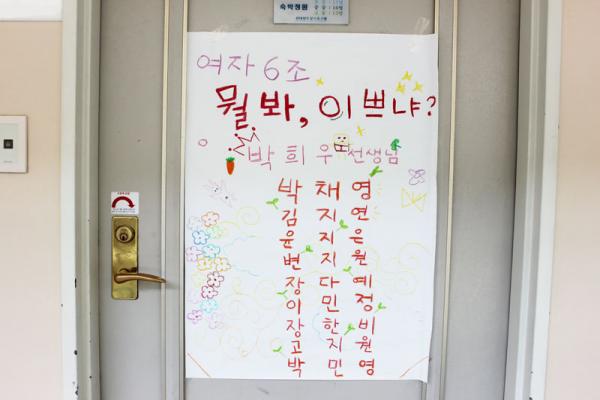 숙박정원
여자 6조
뭘 봐, 이쁘냐?
박희우 선생님
박 채 영
김 지 연
윤 지 은
변 지 원
장 다 예
이 민 정
장 한 비
고 지 원
박 민 영